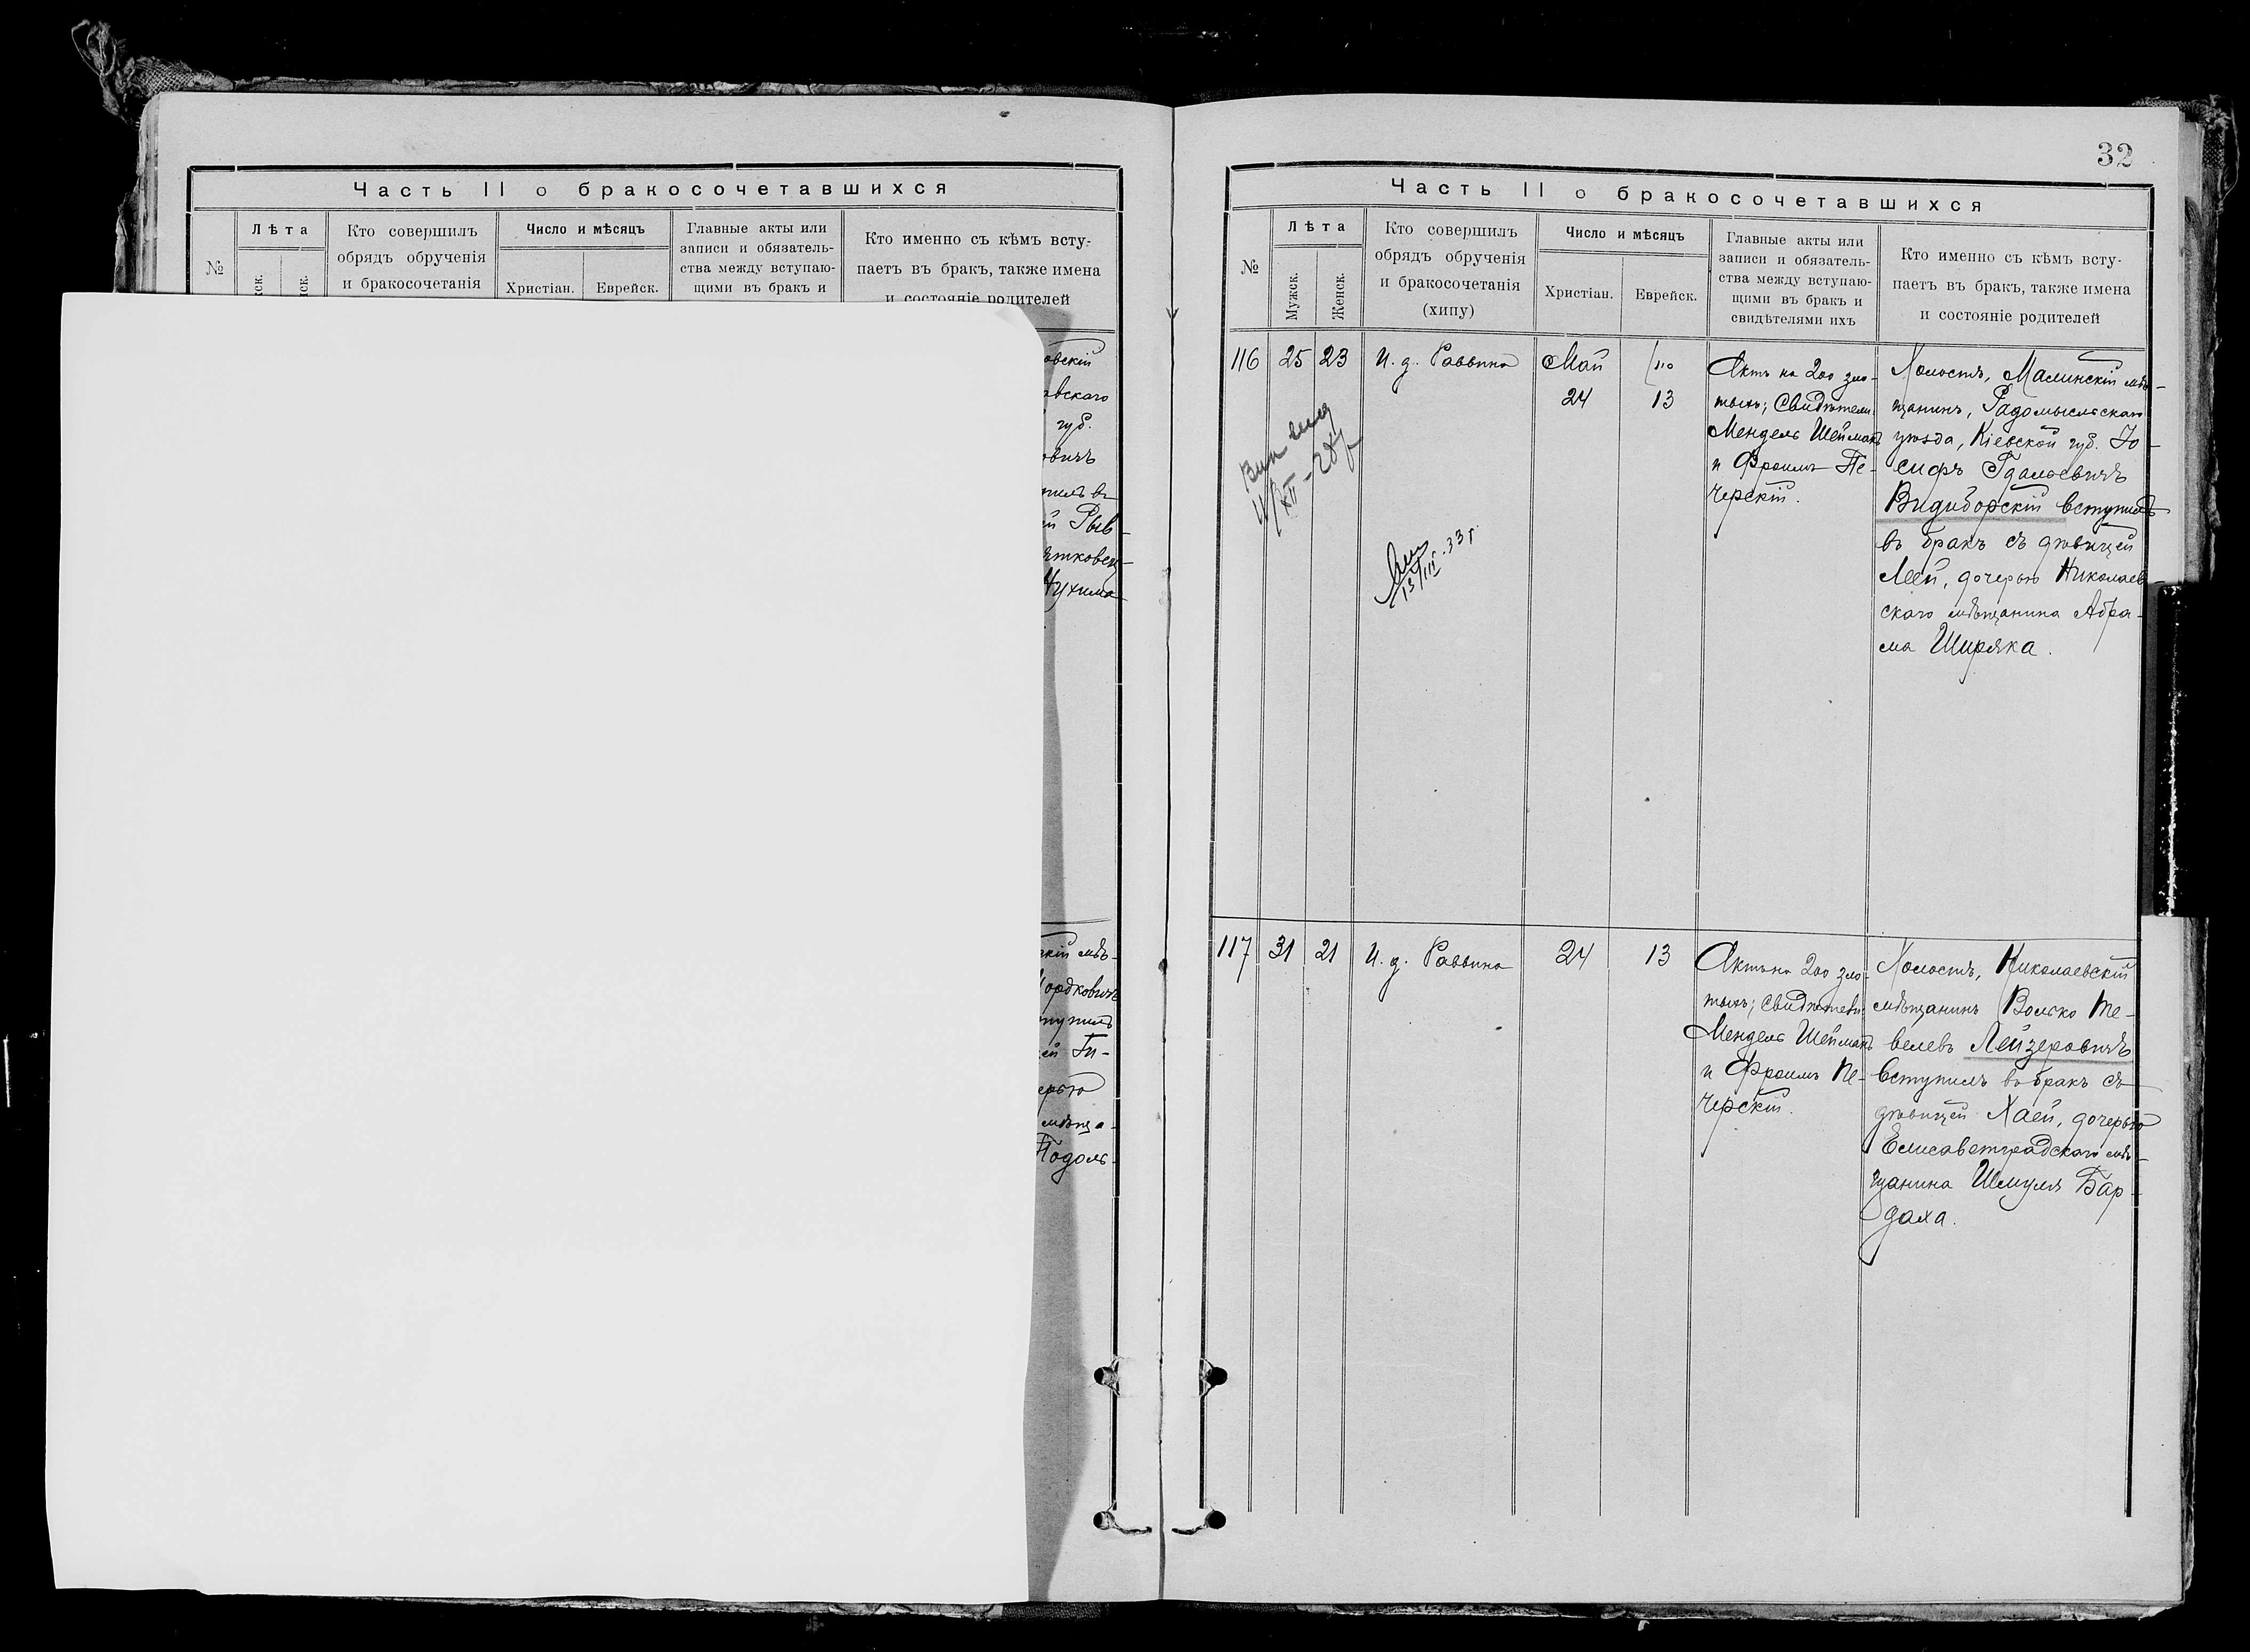 Часть II о бракосочетавшихся
№
Лѣта
Кто совершилъ
обрядъ обрученія
и бракосочетанія
Число и мѣсяцъ
Христіан.
Еврейск.
Главные акты или
записи и обязатель-
ства между вступаю-
щими въ бракъ и
Кто именно съ кѣмъ всту-
паетъ въ бракъ, также имена
и состояніе родителей
овскій
авскаго
губ.
овичъ
Рыв-
Нухима
скій мѣ-
ордковичъ
ей Ги-
ерью
мѣща-
Подоль-
32
Часть II о бракосочетавшихся
№
Лѣта
Мужск.
Женск.
Кто совершилъ
обрядъ обрученія
и бракосочетанія
(хипу)
Число и мѣсяцъ
Христіан.
Еврейск.
Главные акты или
записи и обязатель-
ства между вступаю-
щими въ бракъ и
свидѣтелями ихъ
Кто именно съ кѣмъ всту-
паетъ въ бракъ, также имена
и состояніе родителей
116
25
23
И. д. Раввина
Май
24
13
Актъ на 200 зло-
тыхъ; Свидѣтели:
Мендель Шейманъ
и Фроимъ Пе-
черскій.
Холостъ, Малинскій мѣ-
щанинъ, Радомысльскаго
уѣзда, Кіевской губ. Іо-
сифъ Гдальевичъ
Видиборскій вступилъ
въ бракъ съ дѣвицей
Леей, дочерью Николаев-
скаго мѣщанина Абра-
ма Ширяка.
11/XII-28г
13/III-33г
117
31
21
И. д. Раввина
24
13
Актъ на 200 зло-
тыхъ; Свидѣтели:
Мендель Шейманъ
и Фроимъ Пе-
черскій.
Холостъ, Николаевскій
мѣщанинъ Волько Те-
велевъ Лейзеровичъ
вступилъ въ бракъ съ
дѣвицей Хаей, дочерью
Елисаветградскаго мѣ-
щанина Шмуля Бар-
даха.